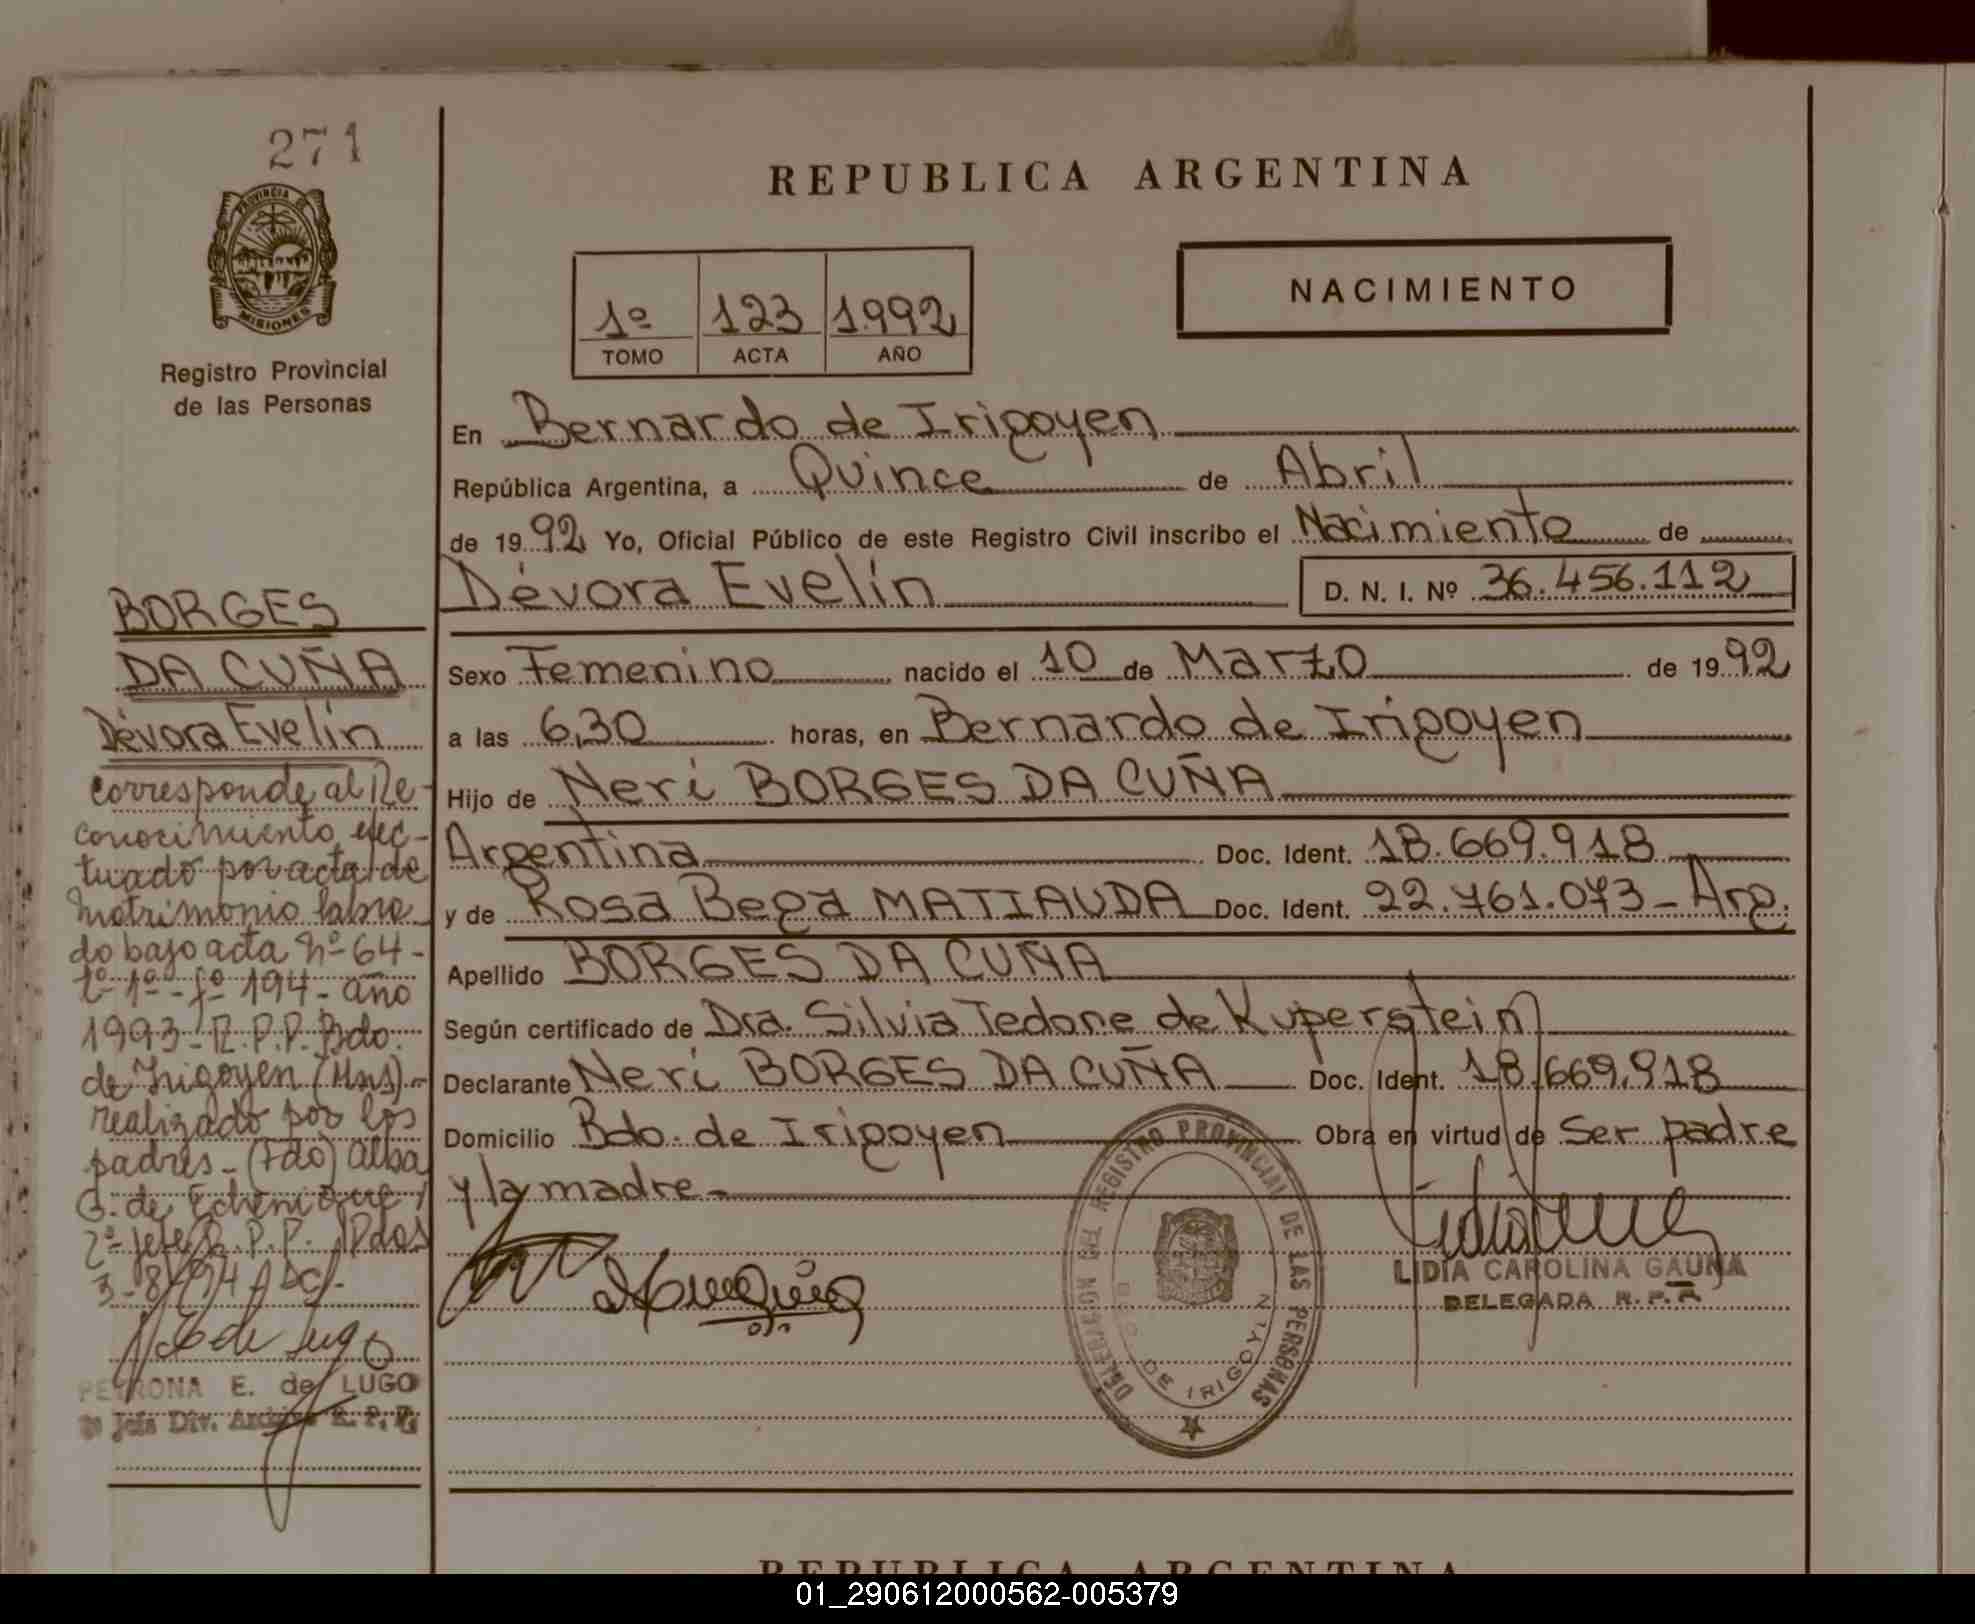 271
PROVINCIA DE
MISIONES
Registro Provincial
de las Personas
REPUBLICA ARGENTINA
1º 123 1992
TOMO ACTA AÑO
NACIMIENTO
En Bernardo de Irigoyen
República Argentina, a Quince de Abril
de 1992 Yo, Oficial Público de este Registro Civil inscribo el Nacimiento de
Dévora Evelín D. N. I. Nº 36.456.112
Sexo Femenino nacido el 10 de Marzo de 1992
a las 6,30 horas, en Bernardo de Irigoyen
Hijo de Neri BORGES DA CUÑA
Argentina Doc. Ident. 18.669.918
y de Rosa Bega MATIAUDA Doc. Ident. 22.761.073 - Arg.
Apellido BORGES DA CUÑA
Según certificado de Dra. Silvia Tedone de Kuperstein
Declarante Neri BORGES DA CUÑA Doc. Ident. 18.669.918
Domicilio Bdo. de Irigoyen Obra en virtud de Ser padre
y la madre -
LIDIA CAROLINA GAUNA
DELEGADA R. P. P.
DELEGACION DEL REGISTRO PROVINCIAL DE LAS PERSONAS
BDO. DE IRIGOYEN
BORGES
DA CUÑA
Dévora Evelín
Corresponde al Re-
conocimiento efec-
tuado por acta de
Matrimonio labra-
do bajo acta Nº 64 -
tº 1º - fº 194 - año
1993 - R. P. P. Bdo.
de Irigoyen (Mns) -
realizado por los
padres - (Fdo) Alba
G. de Echenique
2º Jefe R. P. P. Pdas
3-8-94
PETRONA E. de LUGO
Jefe Div. Archivo R. P. P.
REPUBLICA ARGENTINA
01_290612000562-005379